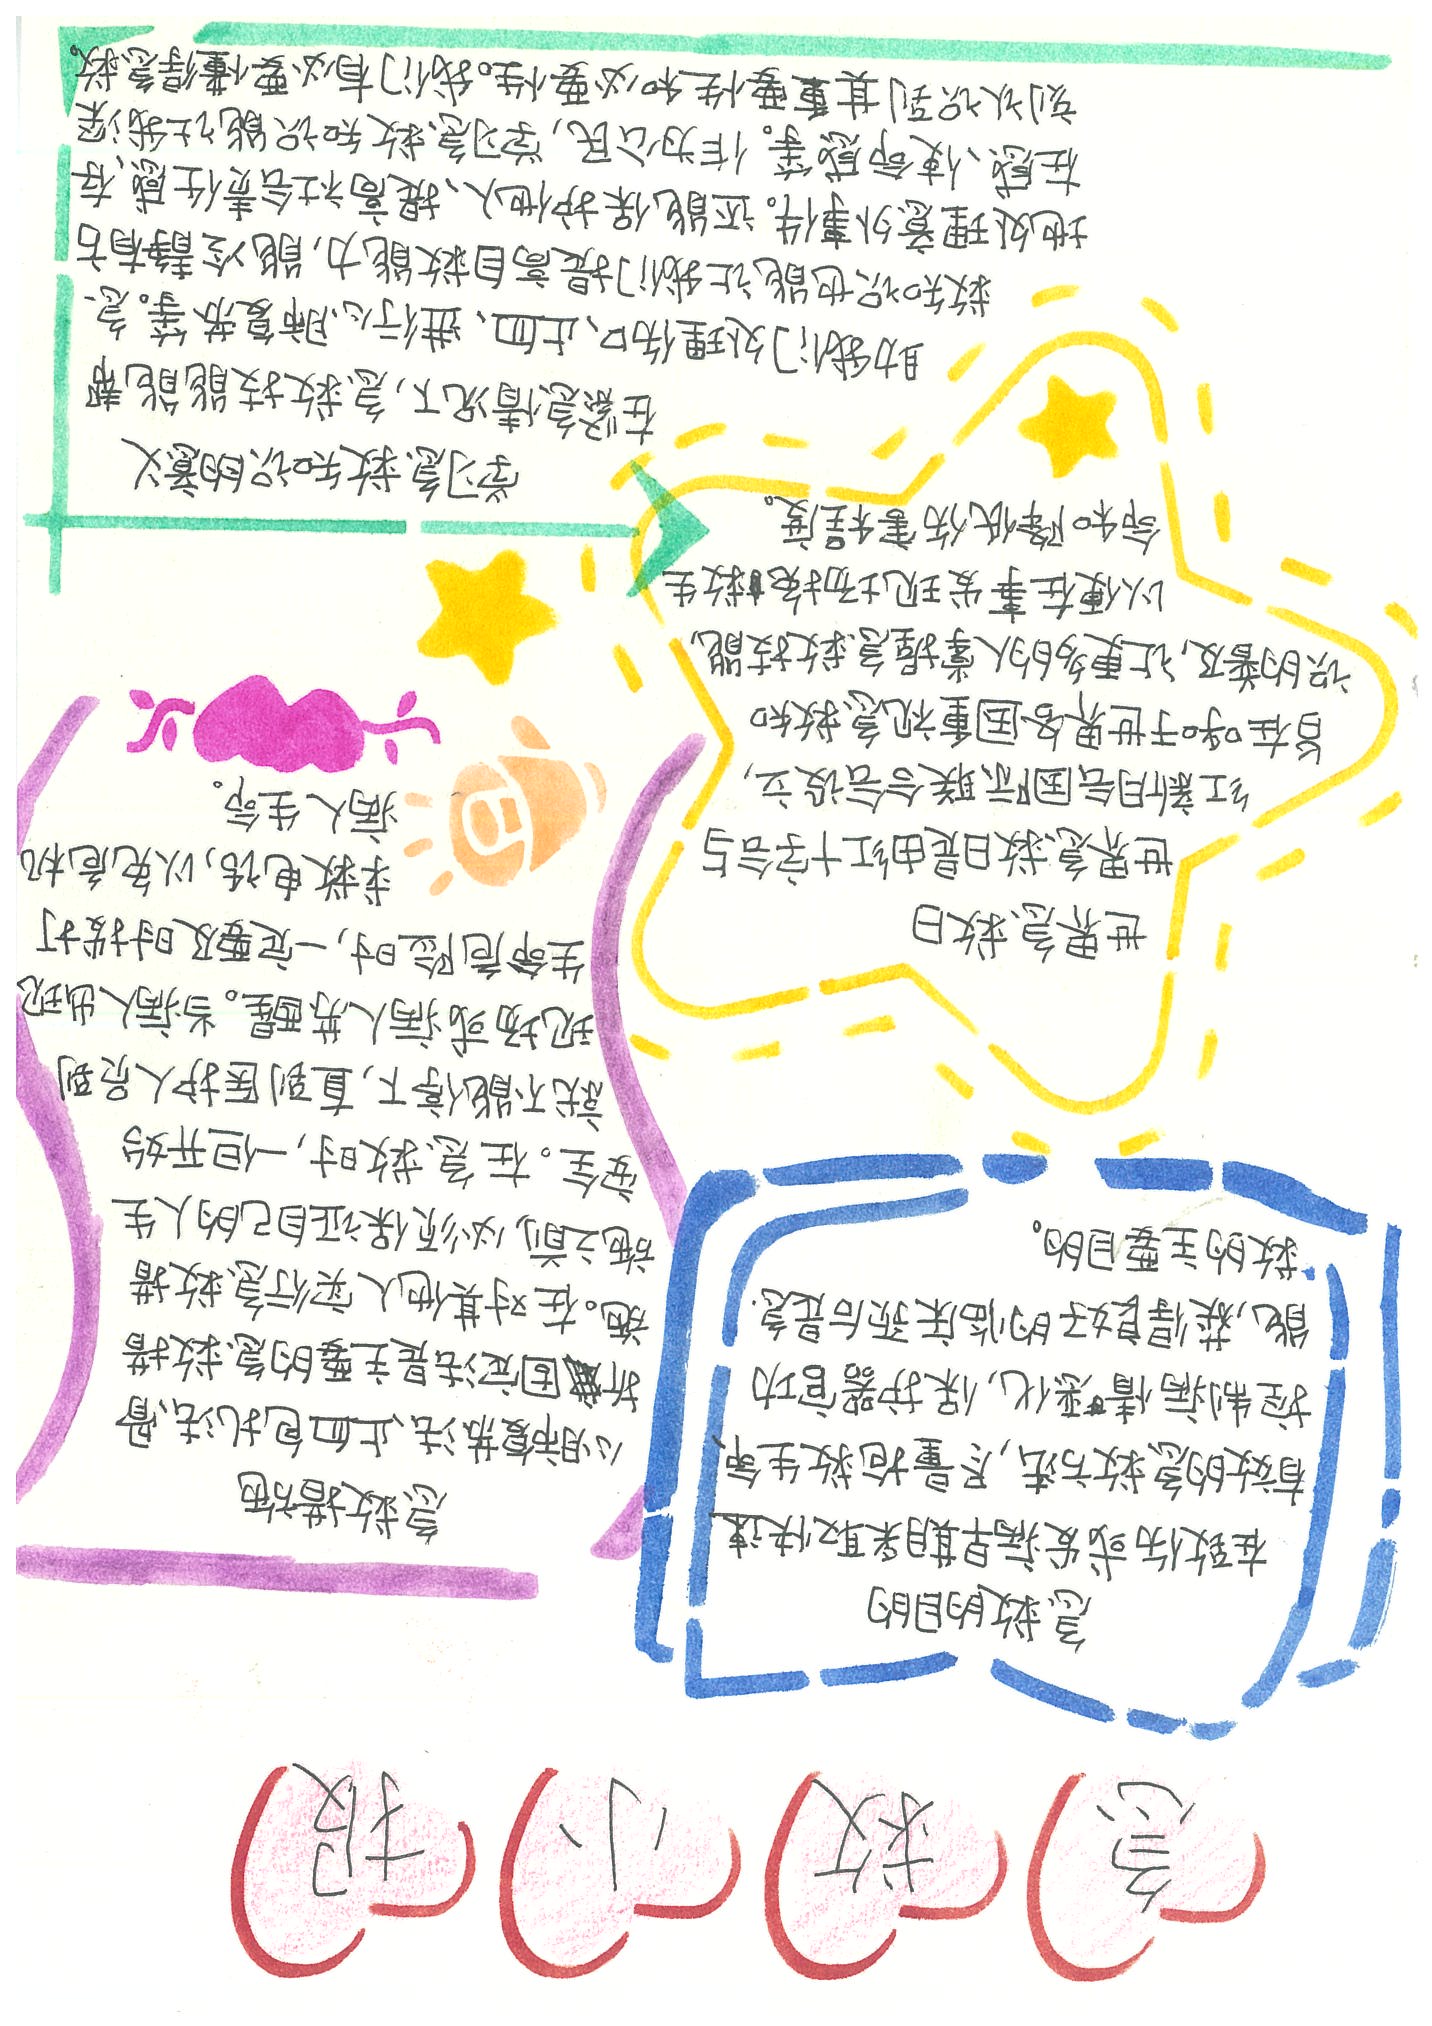 急救小报
急救的目的
在致伤或发病早期采取快速
有效的急救方法,尽量抢救生命、
控制病情恶化,保护器官功
能,获得良好的临床预后是急
救的主要目的。
急救措施
心肺复苏法、止血包扎法、骨
折固定法是主要的急救措
施。在对其他人实行急救措
施之前,必须保证自己的人生
安全。在急救时,一但开始
就不能停下,直到医护人员到
现场或病人苏醒。当病人出现
生命危险时,一定要及时拨打
求救电话,以免危机
病人生命。
世界急救日
世界急救日是由红十字会与
红新月会国际联合会设立,
旨在呼于世界各国重视急救知
识的普及,让更多的人掌握急救技能,
以便在事发现场挽救生
命和降低伤害程度。
学习急救知识的意义
在紧急情况下,急救技能能帮
助我们处理伤口、止血、进行心肺复苏等。急
救知识也能让我们提高自救能力,能冷静有方
地处理意外事件。还能保护他人、提高社会责任感、存
在感、使命感等。作为公民,学习急救知识能让我深
刻认识到其重要性和必要性。我们有必要懂得急救。